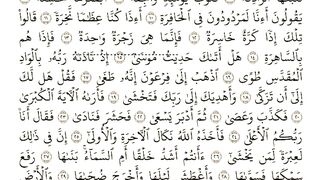 يَقُولُونَ أَءِنَّا لَمَرْدُودُونَ فِي ٱلْحَافِرَةِ ١٠ أَءِذَا كُنَّا عِظَٰمًا نَّخِرَةً ١١ قَالُوا۟
تِلْكَ إِذًا كَرَّةٌ خَاسِرَةٌ ١٢ فَإِنَّمَا هِيَ زَجْرَةٌ وَٰحِدَةٌ ١٣ فَإِذَا هُم
بِٱلسَّاهِرَةِ ١٤ هَلْ أَتَىٰكَ حَدِيثُ مُوسَىٰٓ ١٥ إِذْ نَادَىٰهُ رَبُّهُۥ بِٱلْوَادِ
ٱلْمُقَدَّسِ طُوًى ١٦ ٱذْهَبْ إِلَىٰ فِرْعَوْنَ إِنَّهُۥ طَغَىٰ ١٧ فَقُلْ هَل لَّكَ
إِلَىٰٓ أَن تَزَكَّىٰ ١٨ وَأَهْدِيَكَ إِلَىٰ رَبِّكَ فَتَخْشَىٰ ١٩ فَأَرَىٰهُ ٱلْءَايَةَ ٱلْكُبْرَىٰ
٢٠ فَكَذَّبَ وَعَصَىٰ ٢١ ثُمَّ أَدْبَرَ يَسْعَىٰ ٢٢ فَحَشَرَ فَنَادَىٰ ٢٣ فَقَالَ أَنَا۠
رَبُّكُمُ ٱلْأَعْلَىٰ ٢٤ فَأَخَذَهُ ٱللَّهُ نَكَالَ ٱلْءَاخِرَةِ وَٱلْأُولَىٰٓ ٢٥ إِنَّ فِي ذَٰلِكَ
لَعِبْرَةً لِّمَن يَخْشَىٰٓ ٢٦ ءَأَنتُمْ أَشَدُّ خَلْقًا أَمِ ٱلسَّمَآءُ بَنَىٰهَا ٢٧ رَفَعَ
سَمْكَهَا فَسَوَّىٰهَا ٢٨ وَأَغْطَشَ لَيْلَهَا وَأَخْرَجَ ضُحَىٰهَا